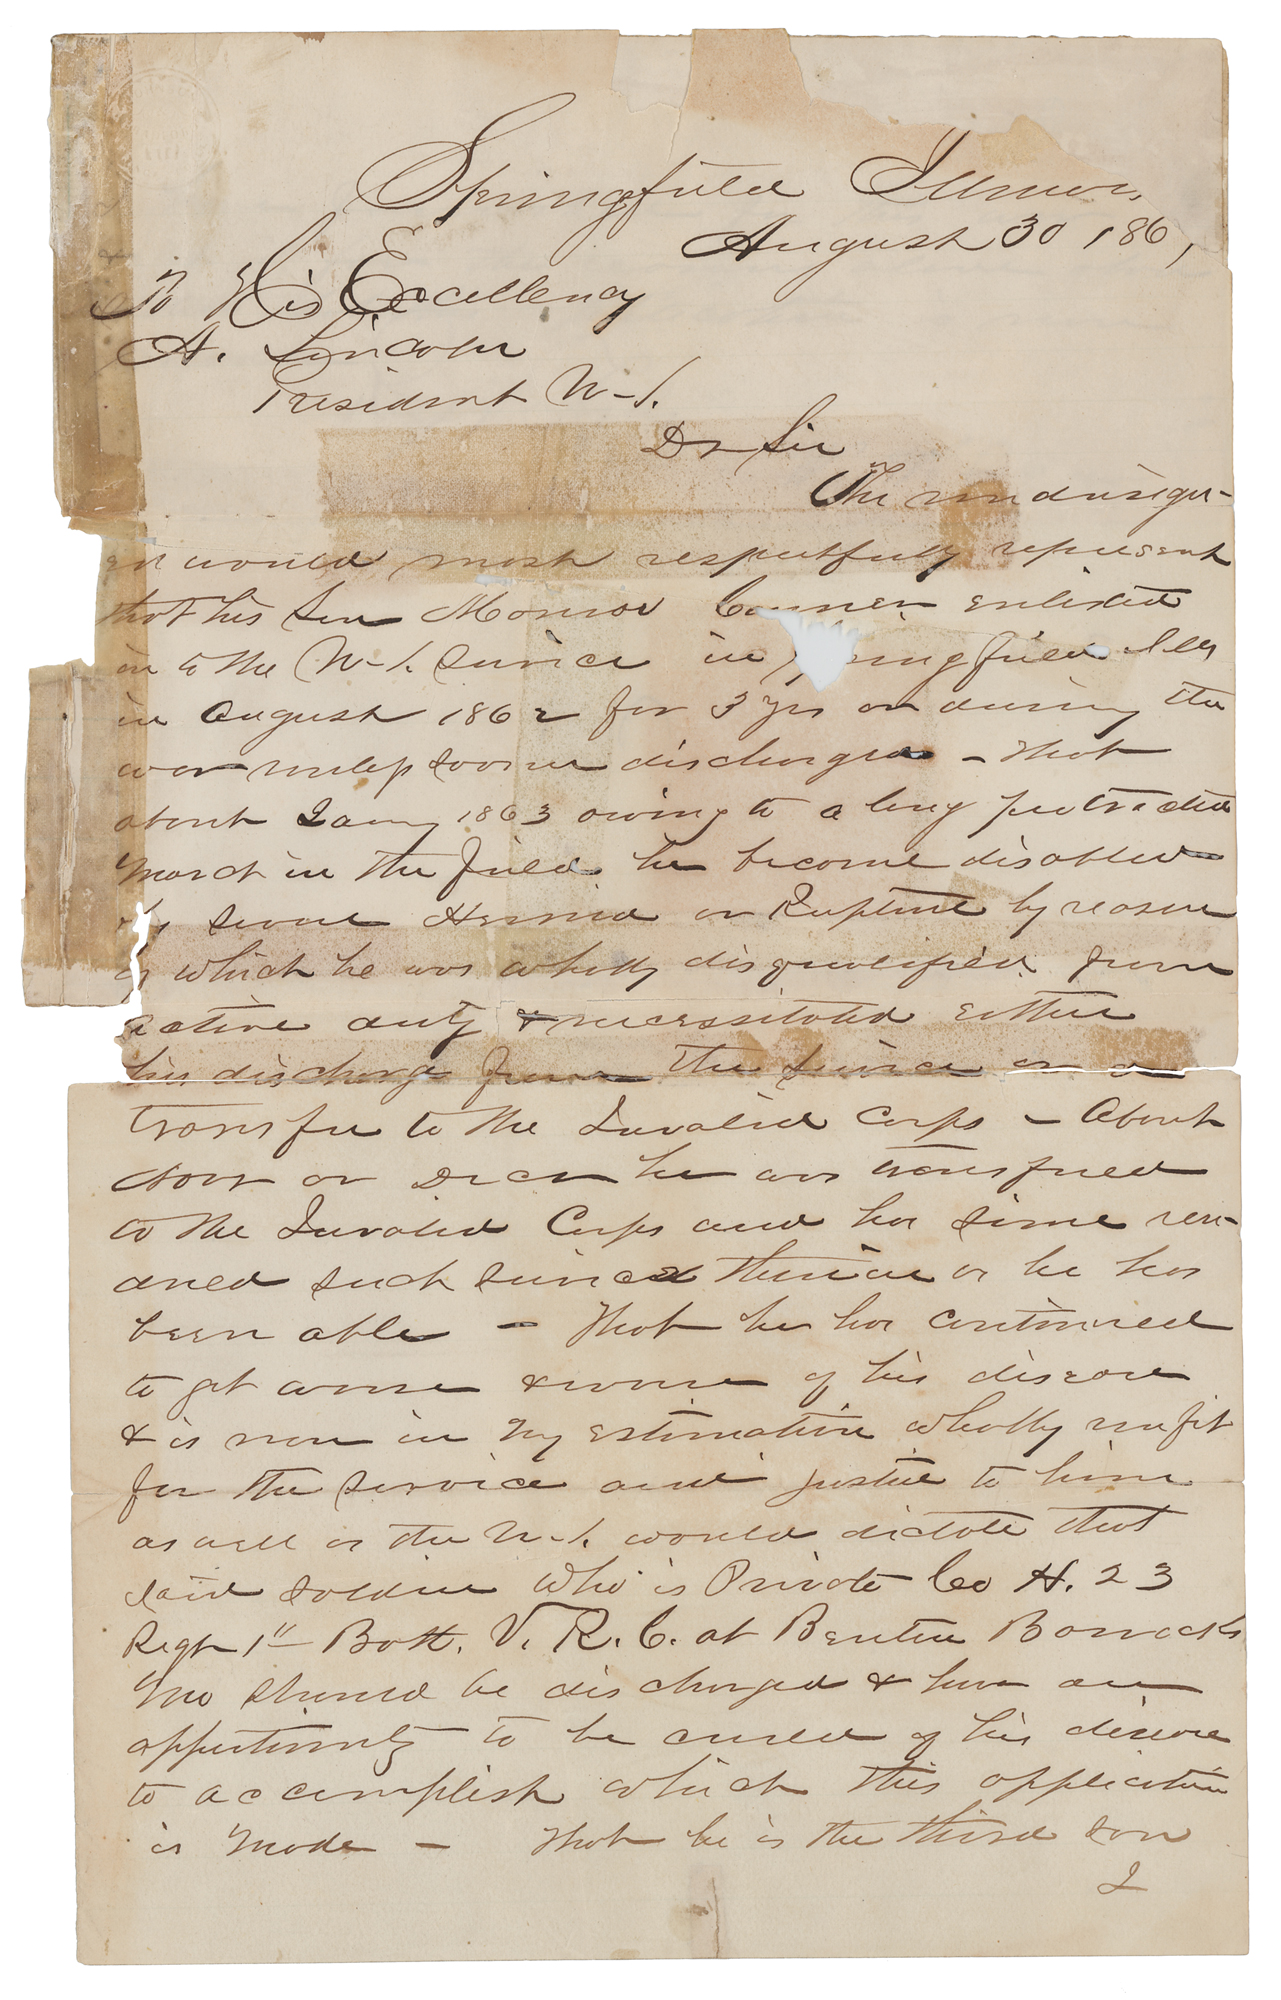 Springfield Illinois
August 30 186
To His Excellency
A. Lincoln
President U.S.
Dr Sir
The undersign-
ed would most respectfully represent
that his Son Monroe enlisted
in to the U.S. Service in Springfield Ills
in August 1862 for 3 yrs or during the
war unless sooner discharged – That
about Jany 1863 owing to a long protracted
March in the field he become disabled
by severe Hernia or Rupture by reason
of which he was wholly disqualified from
active duty & necessitated either
his discharge from the Service or a
transfer to the Invalid Corps – About
Novr or Decr he was transfered
to the Invalid Corps and has since ren-
dred such service therein as he has
been able – That he has continued
to get worse & worse of his disease
& is now in my estimation wholly unfit
for the service and justice to him
as well as the U.S. would dictate that
said soldier who is Private Co H. 23
Regt 1st Batt. V. R. C. at Benton Barracks
Mo should be discharged & have an
oppertunity to be cured of his disease
to accomplish which this application
is made – That he is the third son